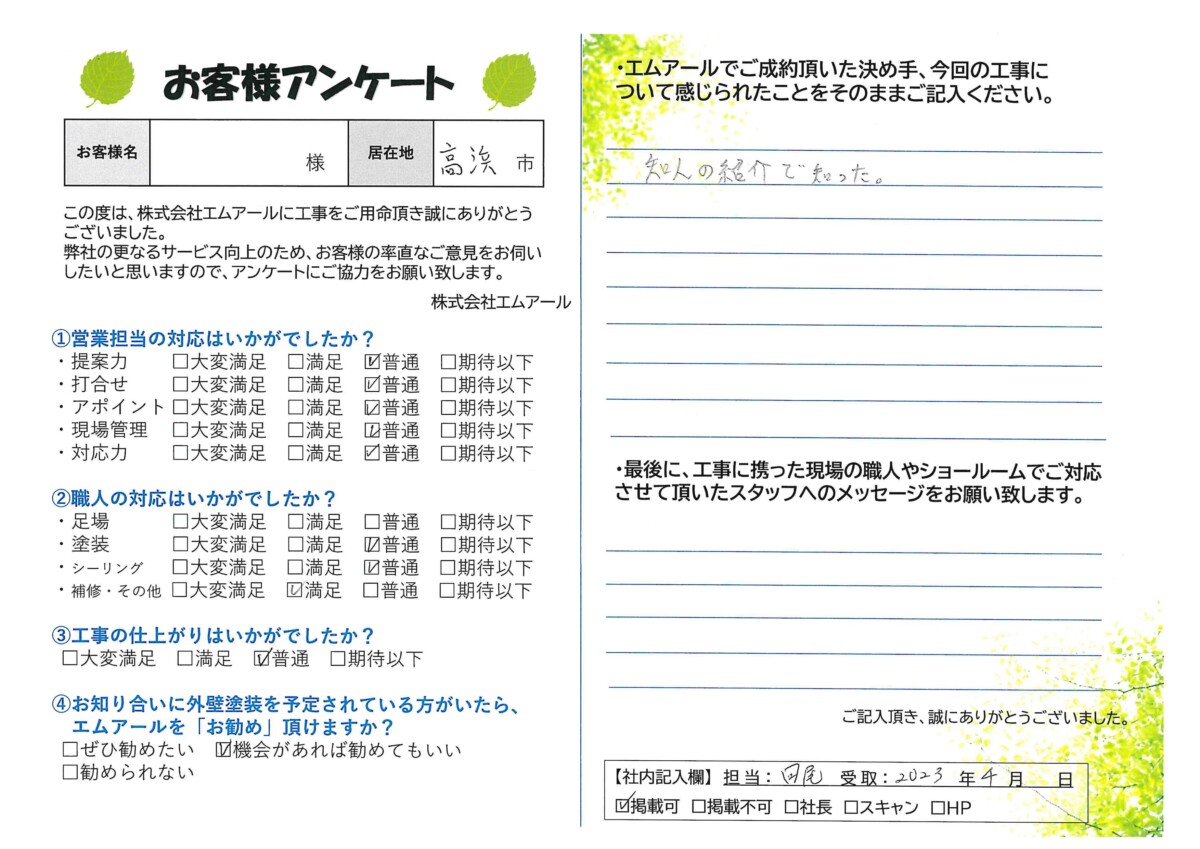 お客様アンケート
お客様名 様 居在地 高浜 市
この度は、株式会社エムアールに工事をご用命頂き誠にありがとう
ございました。
弊社の更なるサービス向上のため、お客様の率直なご意見をお伺い
したいと思いますので、アンケートにご協力をお願い致します。
株式会社エムアール
①営業担当の対応はいかがでしたか？
・提案力 □大変満足 □満足 ☑普通 □期待以下
・打合せ □大変満足 □満足 ☑普通 □期待以下
・アポイント □大変満足 □満足 ☑普通 □期待以下
・現場管理 □大変満足 □満足 ☑普通 □期待以下
・対応力 □大変満足 □満足 ☑普通 □期待以下
②職人の対応はいかがでしたか？
・足場 □大変満足 □満足 □普通 □期待以下
・塗装 □大変満足 □満足 ☑普通 □期待以下
・シーリング □大変満足 □満足 ☑普通 □期待以下
・補修・その他 □大変満足 ☑満足 □普通 □期待以下
③工事の仕上がりはいかがでしたか？
□大変満足 □満足 ☑普通 □期待以下
④お知り合いに外壁塗装を予定されている方がいたら、
エムアールを「お勧め」頂けますか？
□ぜひ勧めたい ☑機会があれば勧めてもいい
□勧められない
・エムアールでご成約頂いた決め手、今回の工事に
ついて感じられたことをそのままご記入ください。
知人の紹介で知った。
・最後に、工事に携った現場の職人やショールームでご対応
させて頂いたスタッフへのメッセージをお願い致します。
ご記入頂き、誠にありがとうございました。
【社内記入欄】担当： 受取：2023 年 4 月 日
☑掲載可 □掲載不可 □社長 □スキャン □HP